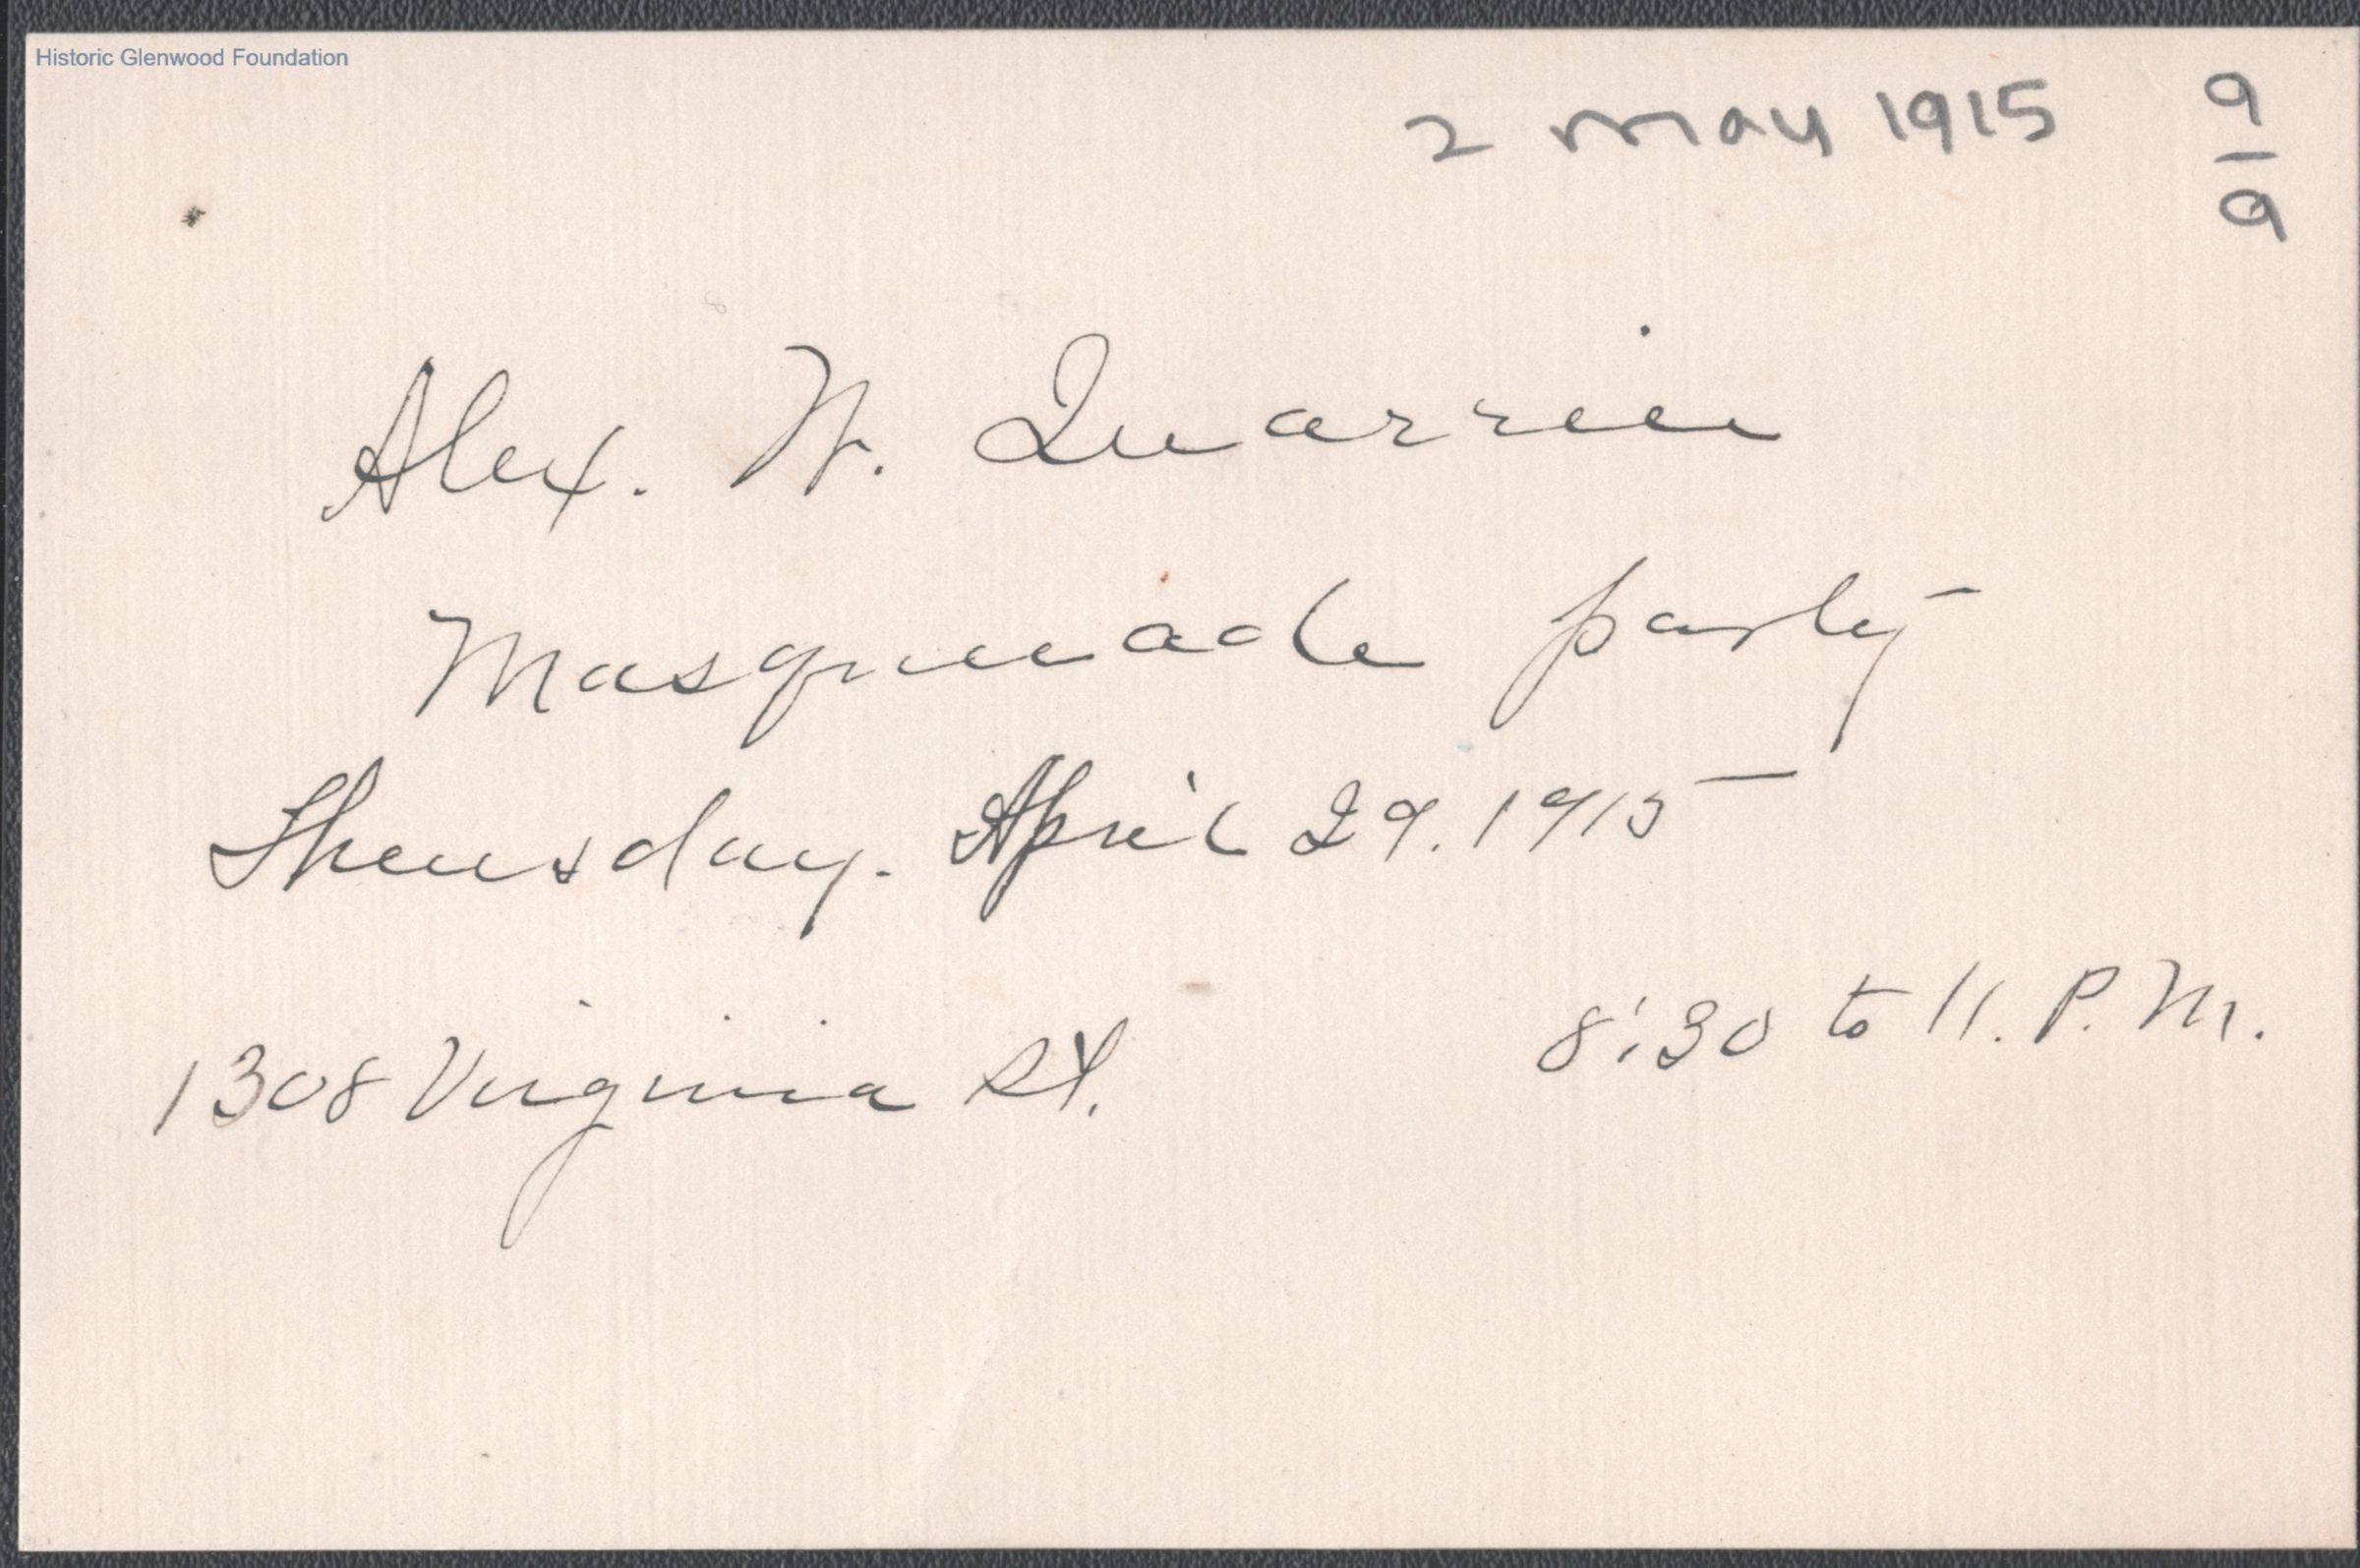 Historic Glenwood Foundation
2 may 1915
9
9
Alex. W. Quarrier
Masquerade party
Thursday. April 29. 1915
1308 Virginia St.
8:30 to 11. P. M.